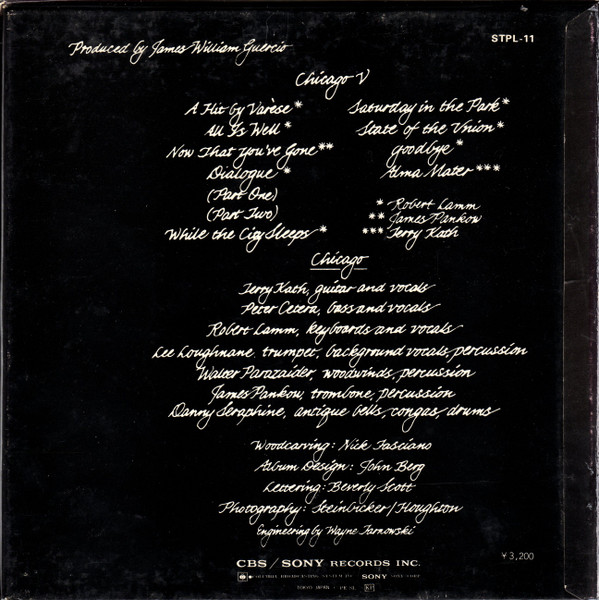 STPL-11
Produced by James William Guercio
Chicago V
A Hit by Varèse *
All Is Well *
Now That You've Gone **
Dialogue *
(Part One)
(Part Two)
While the City Sleeps *
Saturday in the Park *
State of the Union *
Goodbye *
Alma Mater ***
* Robert Lamm
** James Pankow
*** Terry Kath
Chicago
Terry Kath, guitar and vocals
Peter Cetera, bass and vocals
Robert Lamm, keyboards and vocals
Lee Loughnane, trumpet, background vocals, percussion
Walter Parazaider, woodwinds, percussion
James Pankow, trombone, percussion
Danny Seraphine, antique bells, congas, drums
Woodcarving: Nick Fasciano
Album Design: John Berg
Lettering: Beverly Scott
Photography: Steinbicker/Houghton
Engineering by Wayne Tarnowski
¥3,200
CBS/SONY RECORDS INC.
COLUMBIA BROADCASTING SYSTEM INC SONY SONY CORP.
TOKYO JAPAN